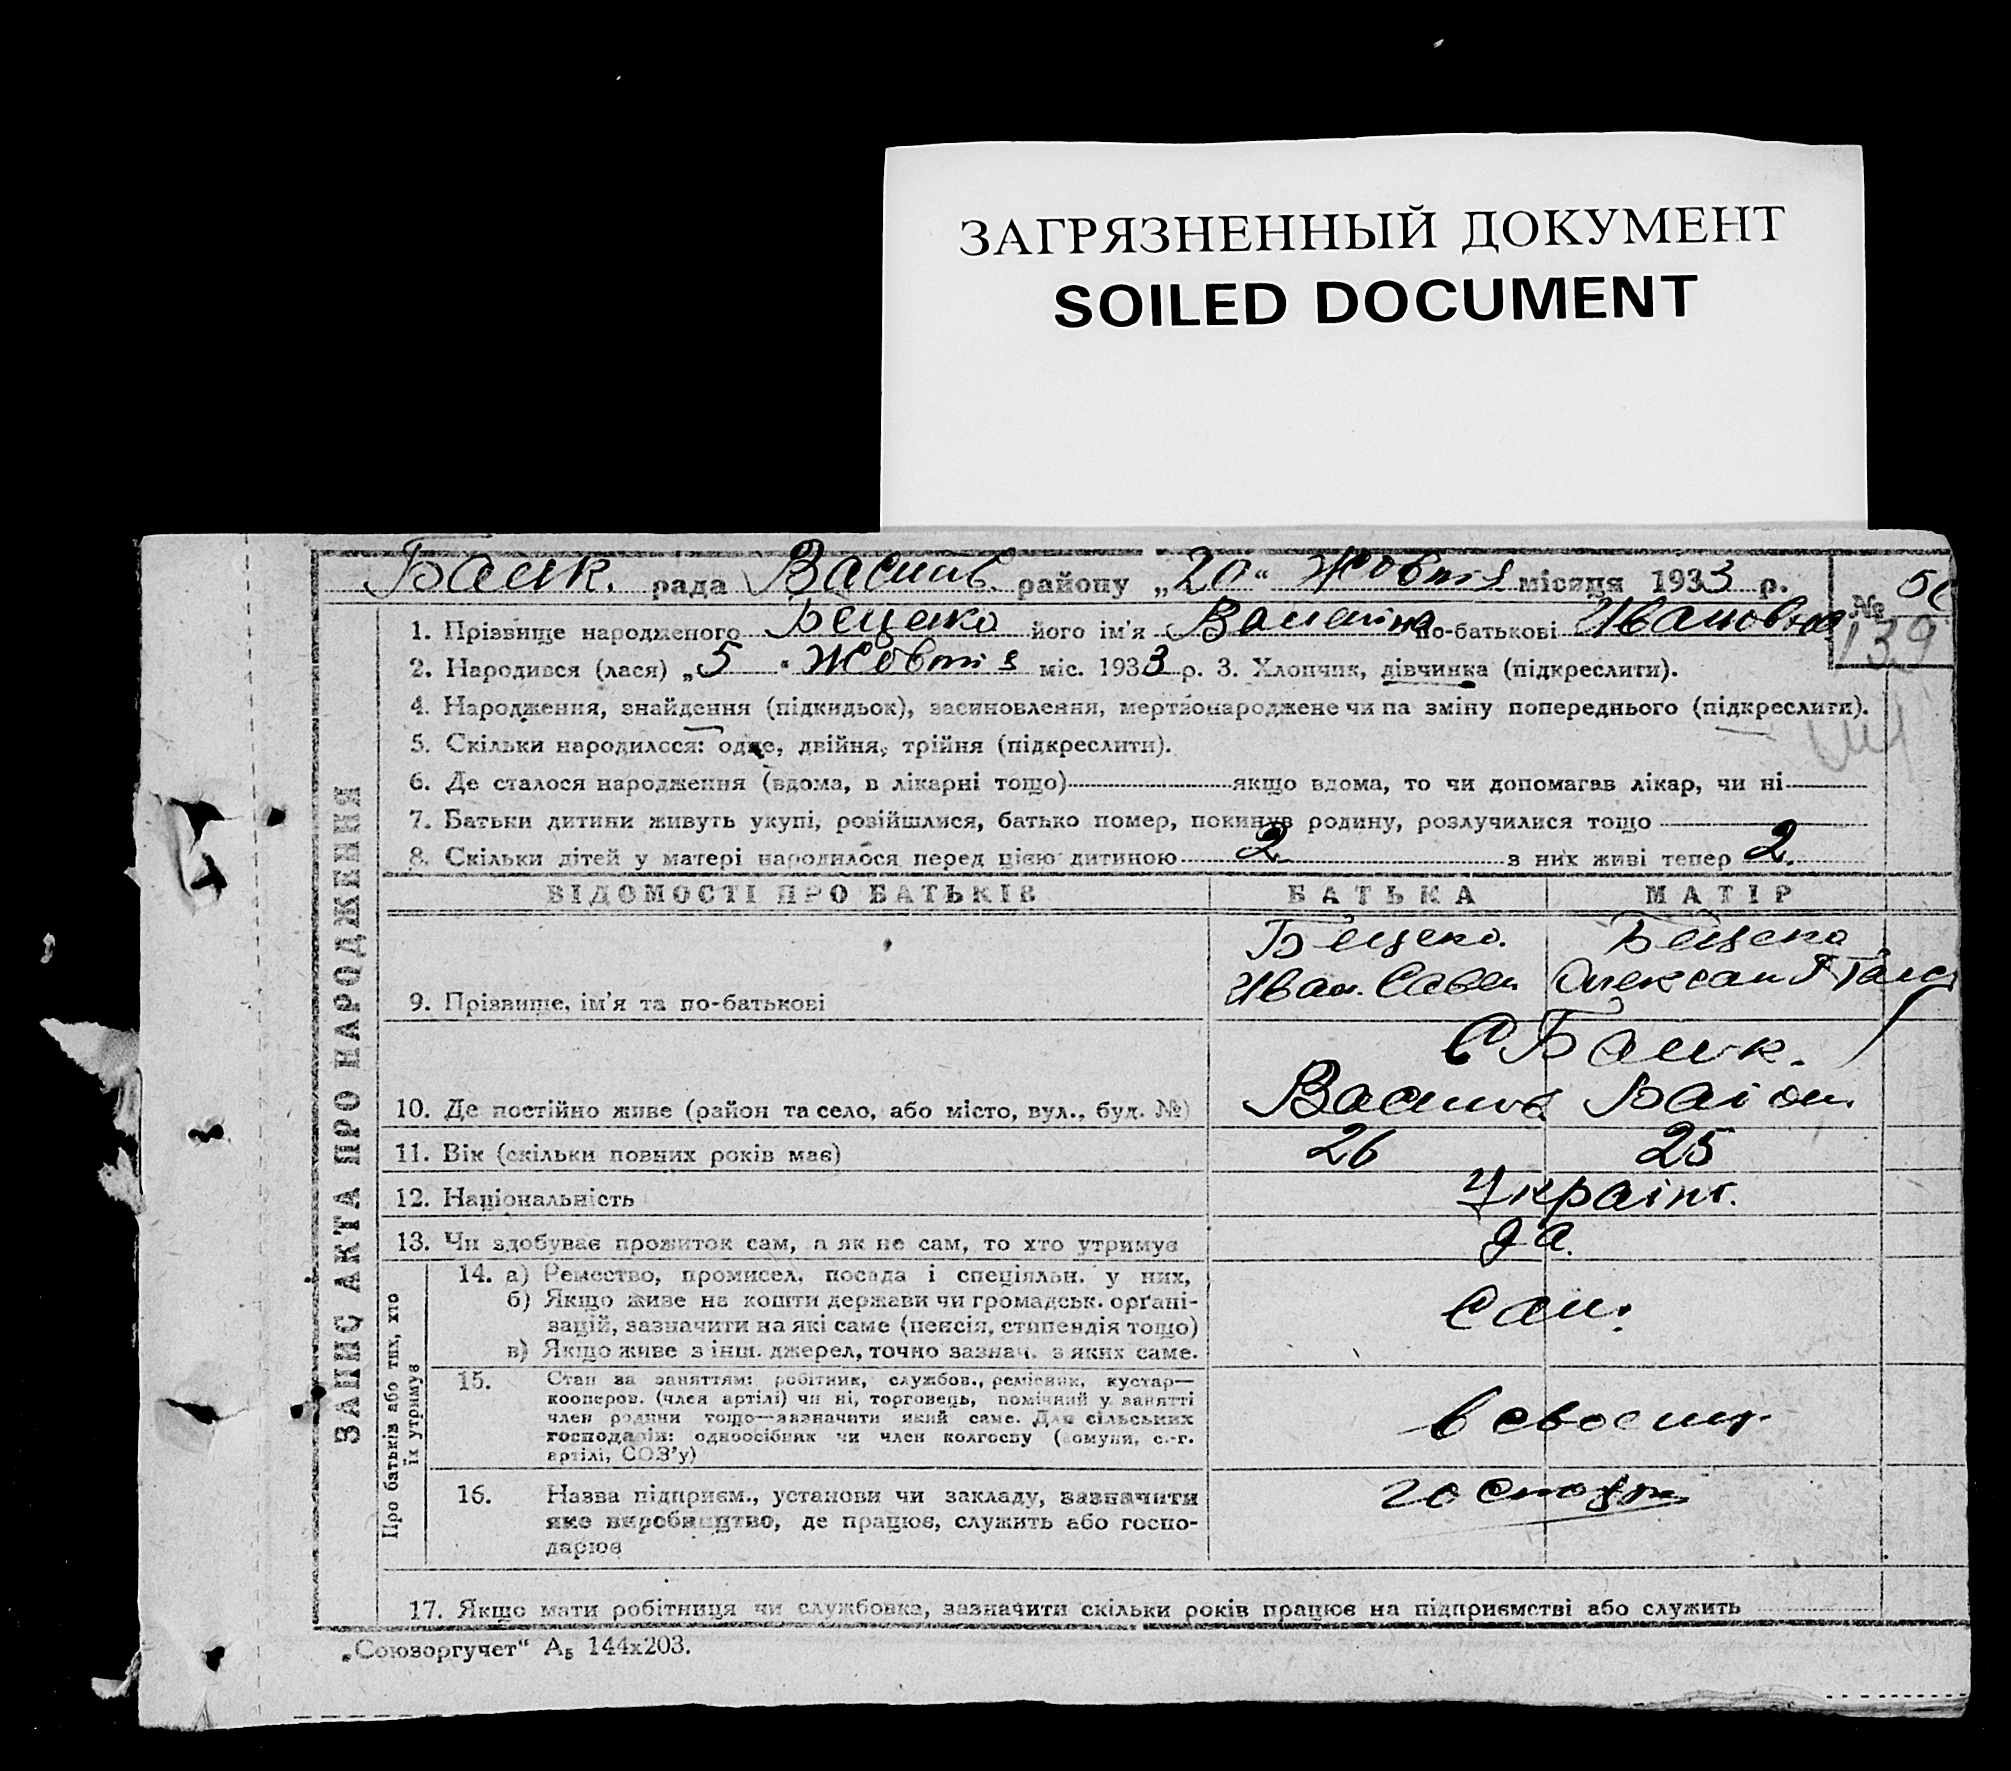 ЗАГРЯЗНЕННЫЙ ДОКУМЕНТ
SOILED DOCUMENT
рада Васильв. району „20“ Жовтня місяця 1933 р.
№
139
1. Прізвище народженого Беценко його ім'я Валентіна по-батькові Ивановна
2. Народився (лася) „5“ Жовтня міс. 1933 р. 3. Хлопчик, дівчинка (підкреслити).
4. Народження, знайдення (підкидьок), засиновлення, мертвонароджене чи на зміну попереднього (підкреслити).
5. Скільки народилося: одне, двійня, трійня (підкреслити).
6. Де сталося народження (вдома, в лікарні тощо) якщо вдома, то чи допомагав лікар, чи ні
7. Батьки дитини живуть укупі, розійшлися, батько помер, покинув родину, розлучилися тощо
8. Скільки дітей у матері народилося перед цією дитиною 2 з них живі тепер 2.
ЗАПИС АКТА ПРО НАРОДЖЕННЯ
ВІДОМОСТІ ПРО БАТЬКІВ БАТЬКА МАТІР
Беценко. Беценко
9. Прізвище, ім'я та по-батькові Иван. Савел
10. Де постійно живе (район та село, або місто, вул., буд. №)
11. Вік (скільки повних років має) 26 25
12. Національність Україн.
13. Чи здобуває прожиток сам, а як не сам, то хто утримує да.
Про батьків або тих, хто їх утримує
14. а) Ремество, промисел, посада і спеціяльн. у них,
б) Якщо живе на кошти держави чи громадськ. організацій, зазначити на які саме (пенсія, стипендія тощо) Сам.
в) Якщо живе з інш. джерел, точно зазнач. з яких саме.
15. Стан за заняттям: робітник, службов., ремісник, кустар—
кооперов. (член артілі) чи ні, торговець, помічний у занятті
член родини тощо—зазначити який саме. Для сільських
господарів: одноосібник чи член колгоспу (комуни, с.-г.
артілі, СОЗ'у)
в своем
16. Назва підприєм., установи чи закладу, зазначити
яке виробництво, де працює, служить або господарює
17. Якщо мати робітниця чи службовка, зазначити скільки років працює на підприємстві або служить
„Союзоргучет“ А₅ 144х203.